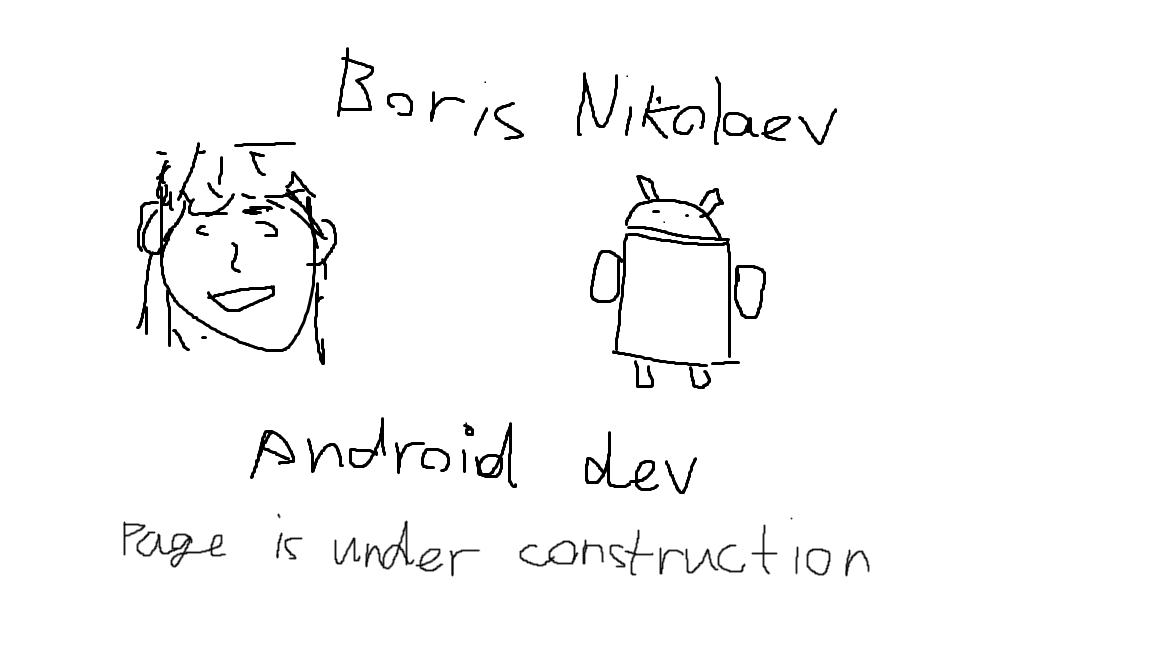 Boris Nikolaev
Android dev
Page is under construction